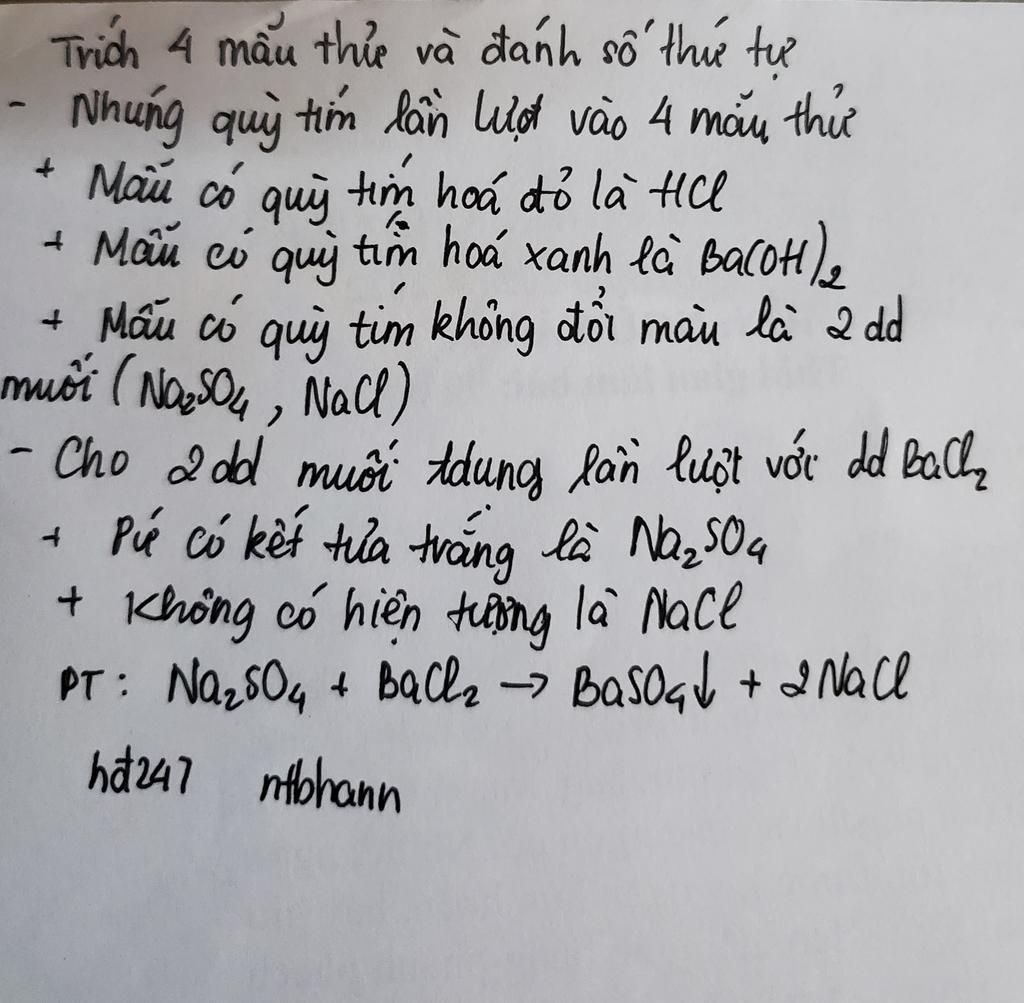 Trích 4 mẫu thử và đánh số thứ tự
- Nhúng quỳ tím lần lượt vào 4 mẫu thử
+ Mẫu có quỳ tím hoá đỏ là HCl
+ Mẫu có quỳ tím hoá xanh là Ba(OH)₂
+ Mẫu có quỳ tím không đổi màu là 2 dd
muối (Na₂SO₄, NaCl)
- Cho 2 dd muối tdung lần lượt với dd BaCl₂
+ Pứ có kết tủa trắng là Na₂SO₄
+ Không có hiện tượng là NaCl
PT: Na₂SO₄ + BaCl₂ → BaSO₄↓ + 2NaCl
hđ247 ntbhann